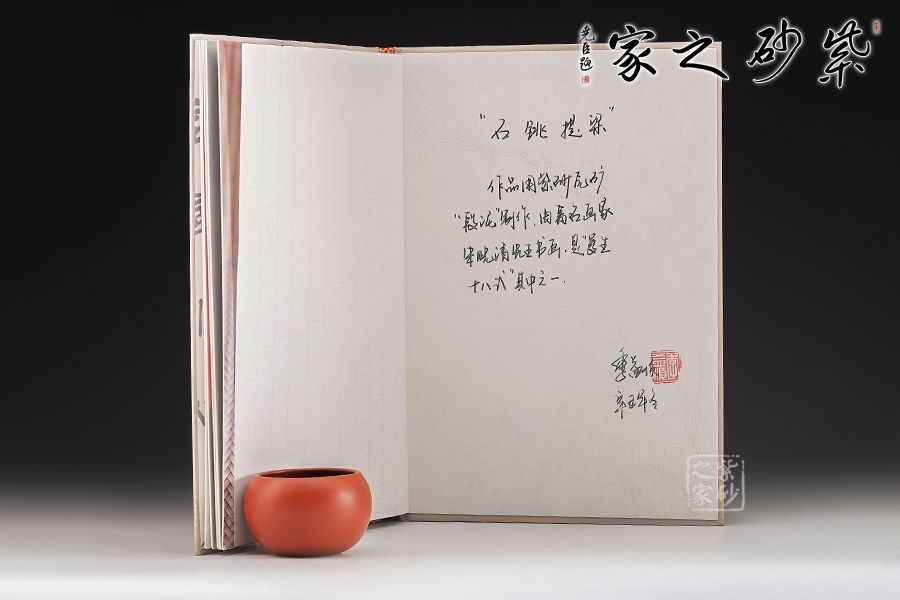 紫砂之家
"石銚提梁"
作品用紫砂原矿
"段泥"制作.由著名画家
先生书画.是"曼生
十八式"其中之一.
季
辛丑年冬
紫砂之家